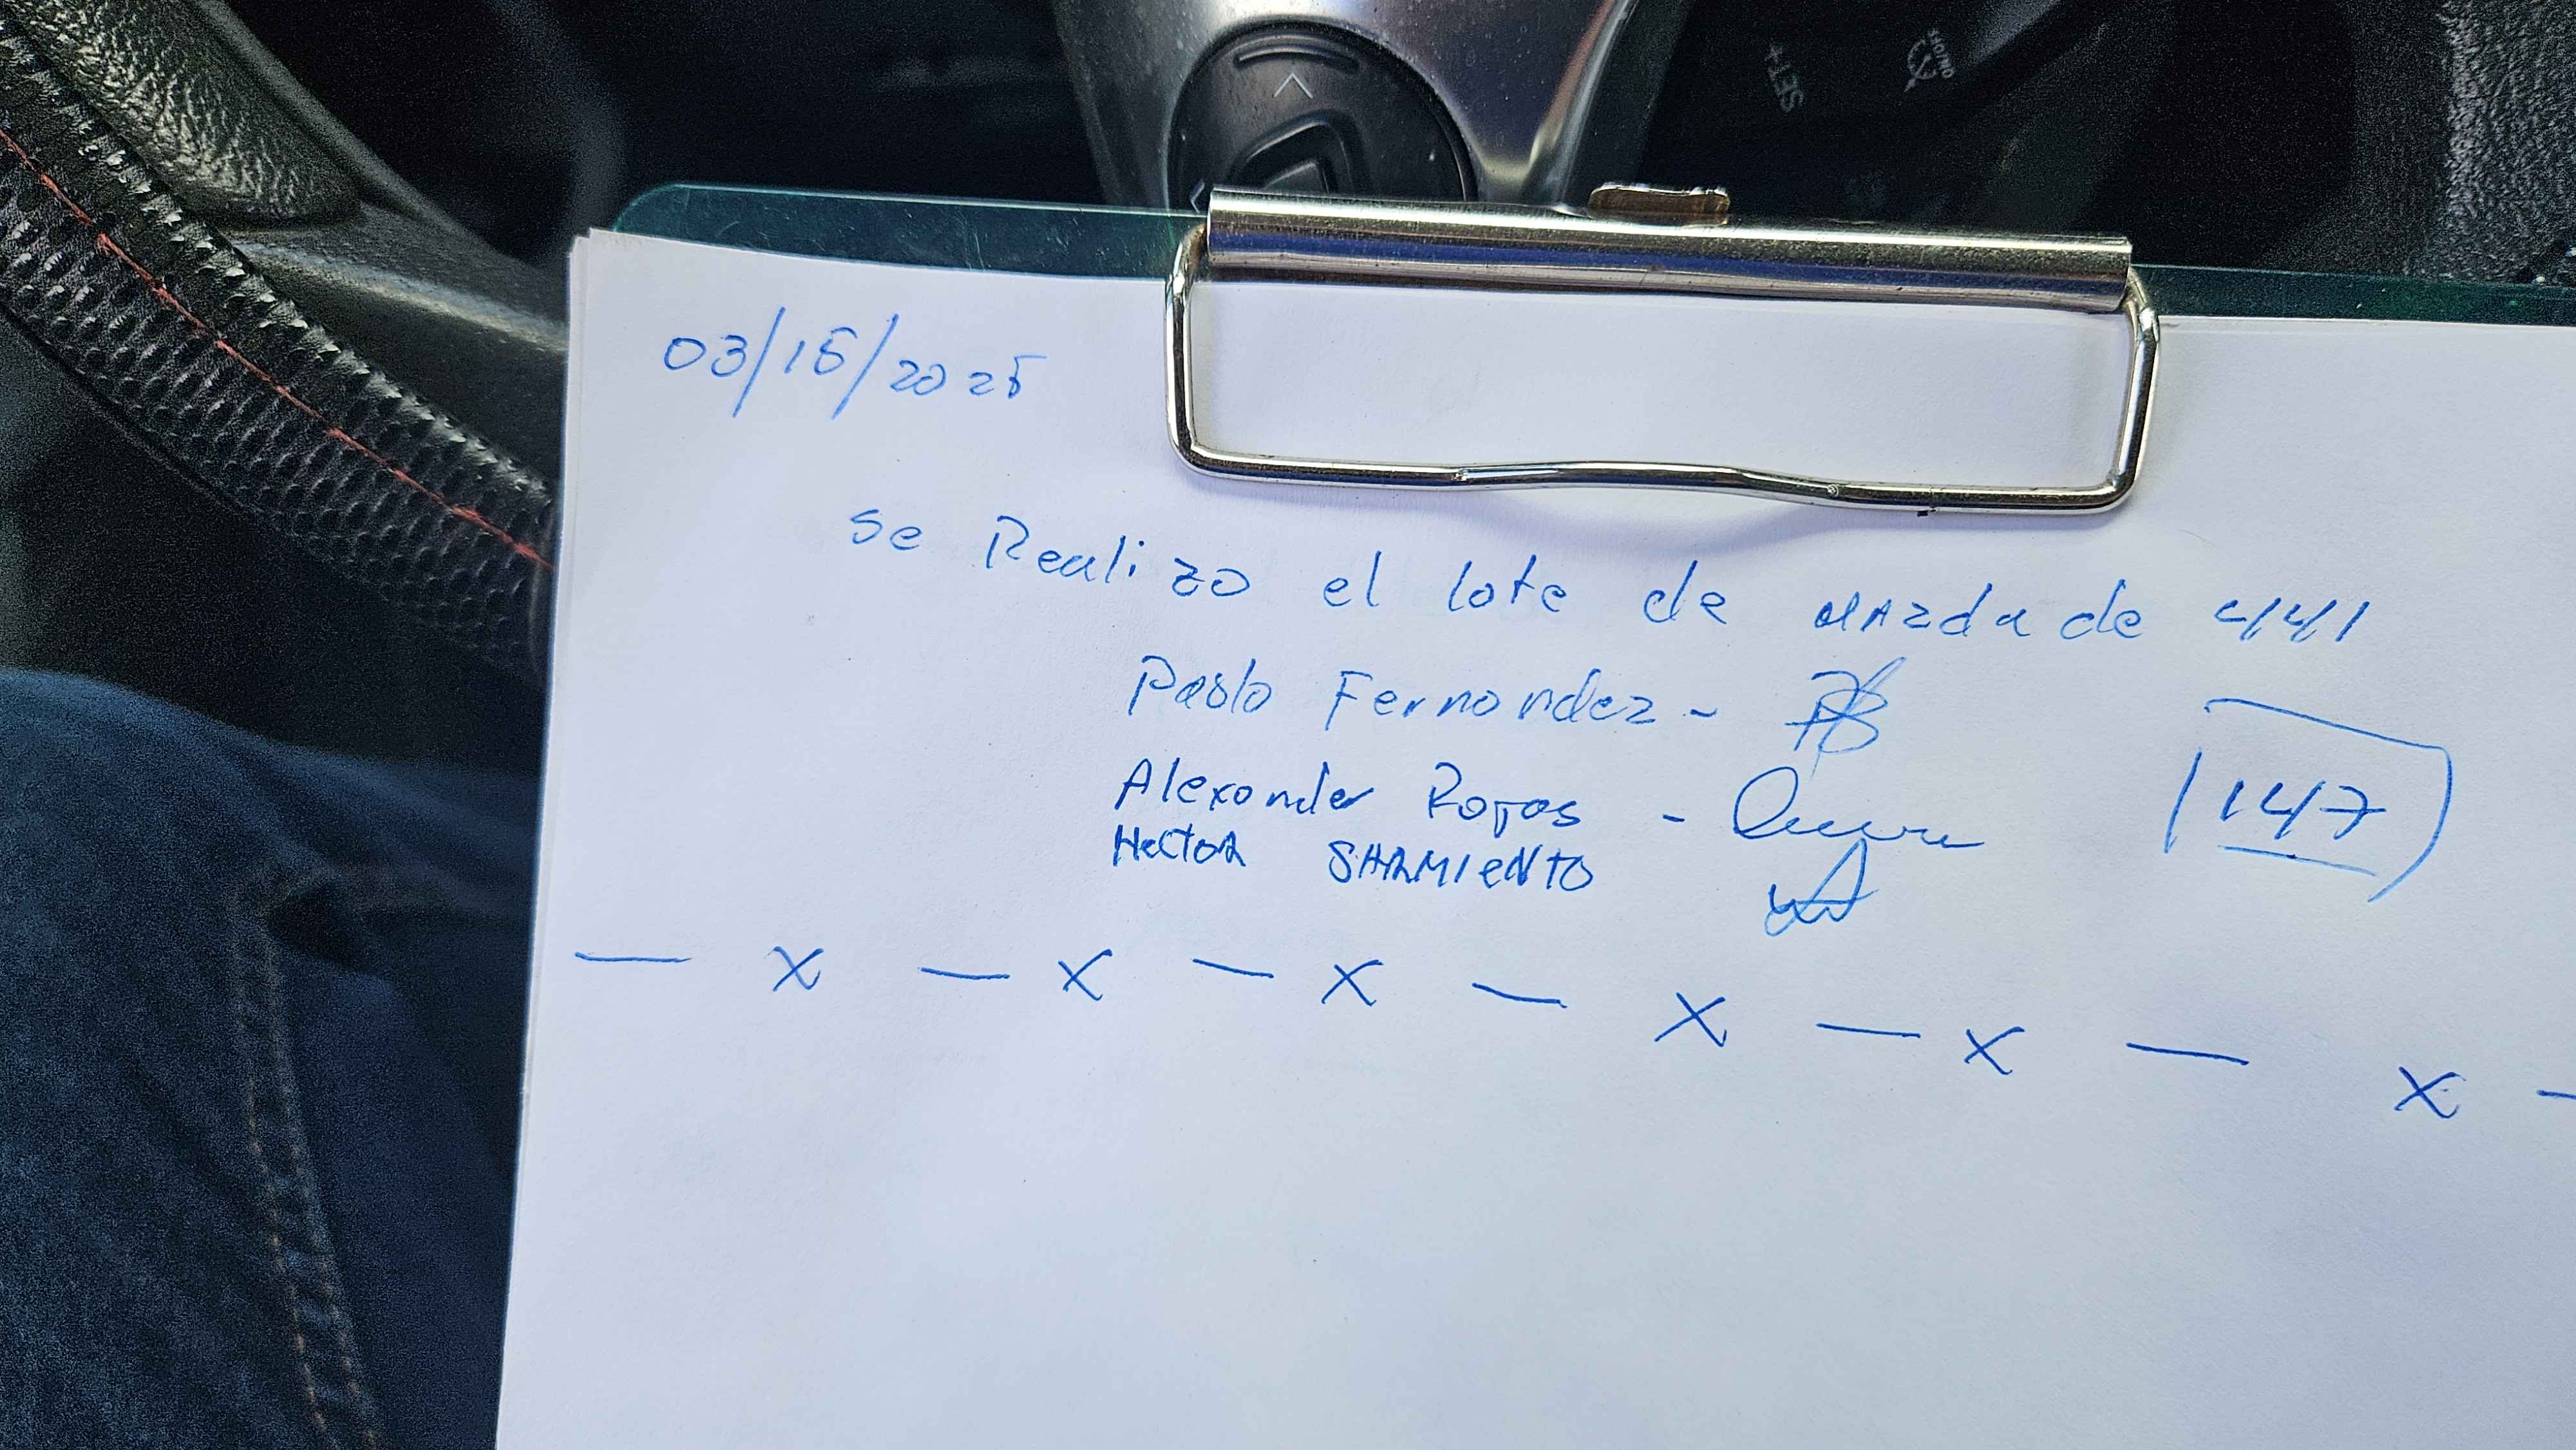 SET+
03/15/2025
se Realizo el lote de MAzda de 441
Pablo Fernandez -
Alexander Rojas -
147
Hector SARMIENTO
— x — x — x — x — x — x -